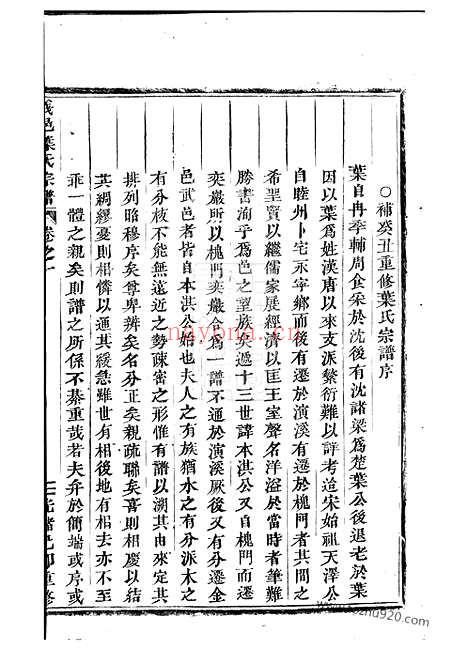 ○補癸丑重修葉氏宗譜序
葉自冉季輔周食采於沈後有沈諸梁爲楚葉公後退老於葉
因以葉爲姓漢唐以來支派繁衍難以詳考迨宋始祖天澤公
自睦州卜宅永寧鄉而後有遷於演溪有遷於槐門者其間之
希聖賢以繼儒家展經濟以匡王室聲名洋溢於當時者筆難
勝書洵乎爲邑之望族矣遞十三世諱本洪公又自槐門而遷
奕巖所以槐門奕巖合爲一譜不通於演溪厥後又有分遷金
邑武邑者皆自本洪公始也夫人之有族猶水之有分派木之
有分枝不能無遠近之勢疎密之形惟有譜以溯其由來定其
排列昭穆序矣尊卑辨矣名分正矣親疏聯矣喜則相慶以結
其綢繆憂則相憐以通其緩急雖世有相後地有相去亦不至
乖一體之親矣則譜之所係不綦重哉若夫弁於簡端或序或
邑葉氏宗譜
卷之一
一
光緒己卯重修
nayona.cn
www.bozhu920.com